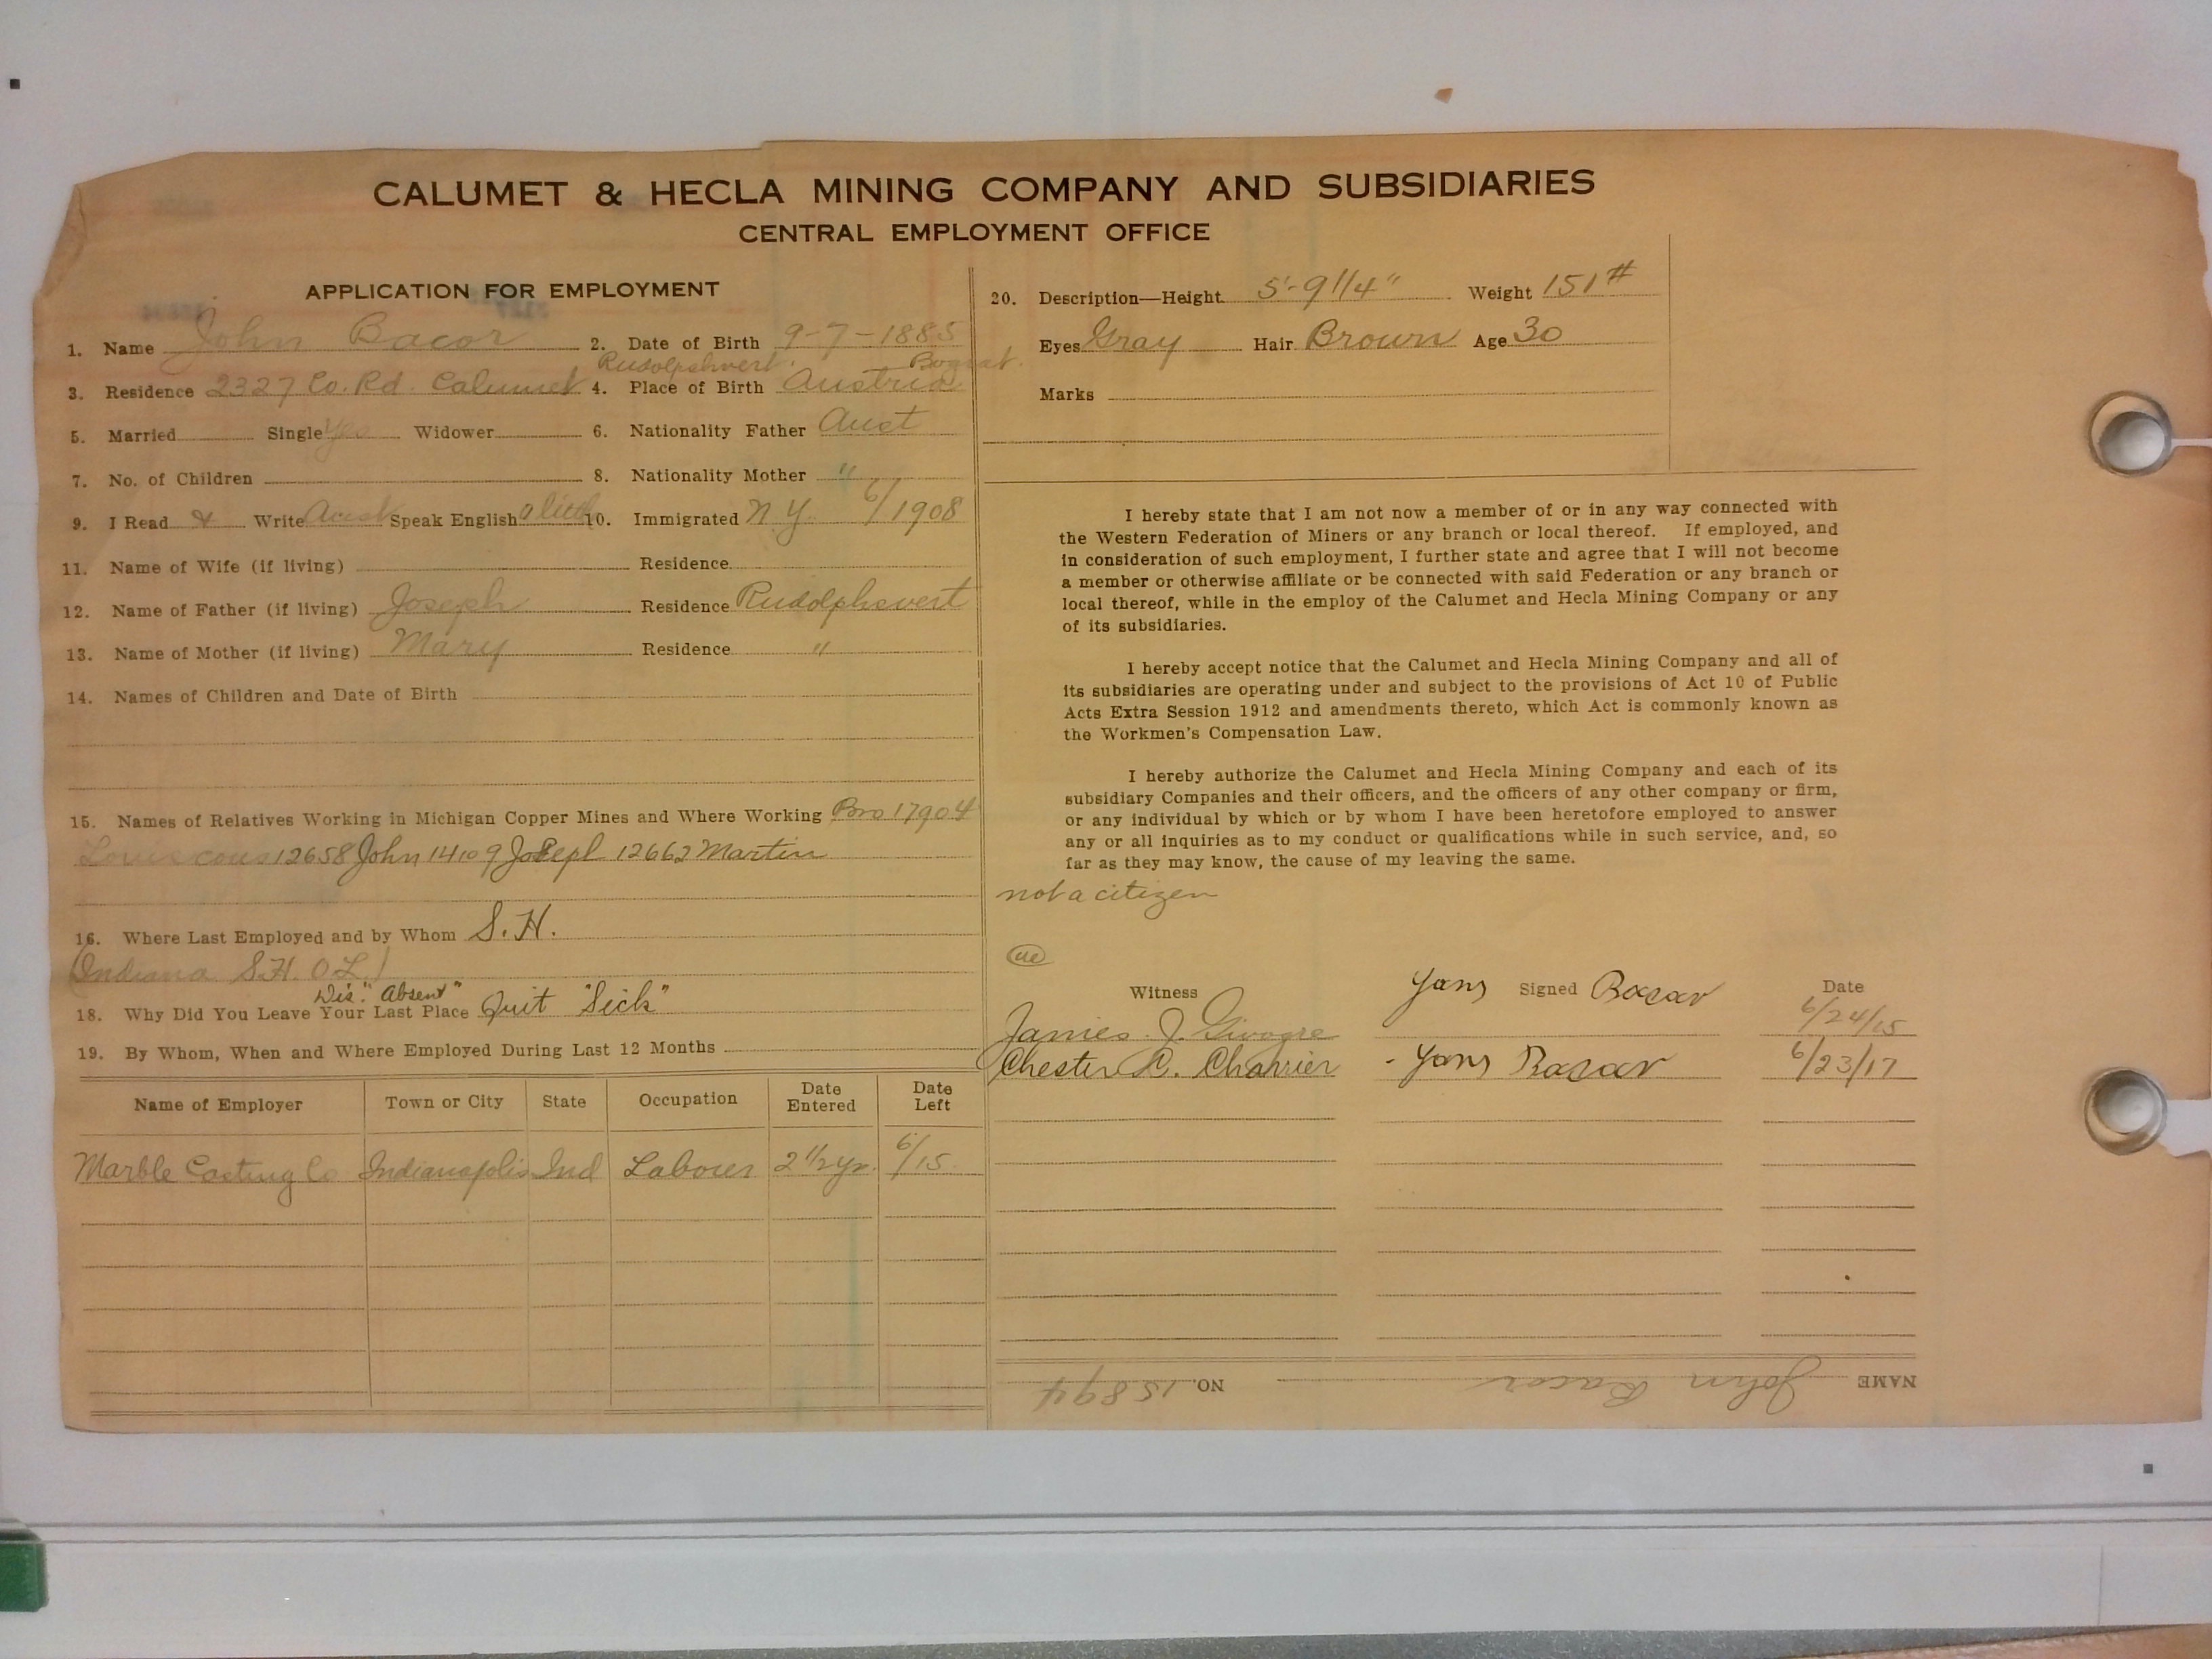 CALUMET & HECLA MINING COMPANY AND SUBSIDIARIES
CENTRAL EMPLOYMENT OFFICE
APPLICATION FOR EMPLOYMENT
1. Name John Bacor 2. Date of Birth 9-7-1885
Rudolphsvert.
3. Residence 2327 Co. Rd. Calumet 4. Place of Birth Austria
5. Married Single Yes Widower 6. Nationality Father Aust
7. No. of Children 8. Nationality Mother "
9. I Read & Write Aust Speak English a little 10. Immigrated N.Y. 6/1908
11. Name of Wife (if living) Residence
12. Name of Father (if living) Joseph Residence Rudolphsvert
13. Name of Mother (if living) Mary Residence "
14. Names of Children and Date of Birth
15. Names of Relatives Working in Michigan Copper Mines and Where Working Bro 17904
Louis cous 12658 John 14109 Joseph 12662 Martin
16. Where Last Employed and by Whom S.H.
(Indiana S.H. O.L.)
Dis. "Absent"
18. Why Did You Leave Your Last Place Quit "Sick"
19. By Whom, When and Where Employed During Last 12 Months
Name of Employer Town or City State Occupation Date Entered Date Left
Marble Casting Co Indianapolis Ind Laborer 2 1/2 yr. 6/15
20. Description—Height 5'-9 1/4" Weight 151#
Eyes Gray Hair Brown Age 30
Marks
I hereby state that I am not now a member of or in any way connected with
the Western Federation of Miners or any branch or local thereof. If employed, and
in consideration of such employment, I further state and agree that I will not become
a member or otherwise affiliate or be connected with said Federation or any branch or
local thereof, while in the employ of the Calumet and Hecla Mining Company or any
of its subsidiaries.
I hereby accept notice that the Calumet and Hecla Mining Company and all of
its subsidiaries are operating under and subject to the provisions of Act 10 of Public
Acts Extra Session 1912 and amendments thereto, which Act is commonly known as
the Workmen's Compensation Law.
I hereby authorize the Calumet and Hecla Mining Company and each of its
subsidiary Companies and their officers, and the officers of any other company or firm,
or any individual by which or by whom I have been heretofore employed to answer
any or all inquiries as to my conduct or qualifications while in such service, and, so
far as they may know, the cause of my leaving the same.
not a citizen
Witness Signed Date
James J. 6/24/15
Chester R. Charrier 6/23/17
NAME John Bacor NO. 15894